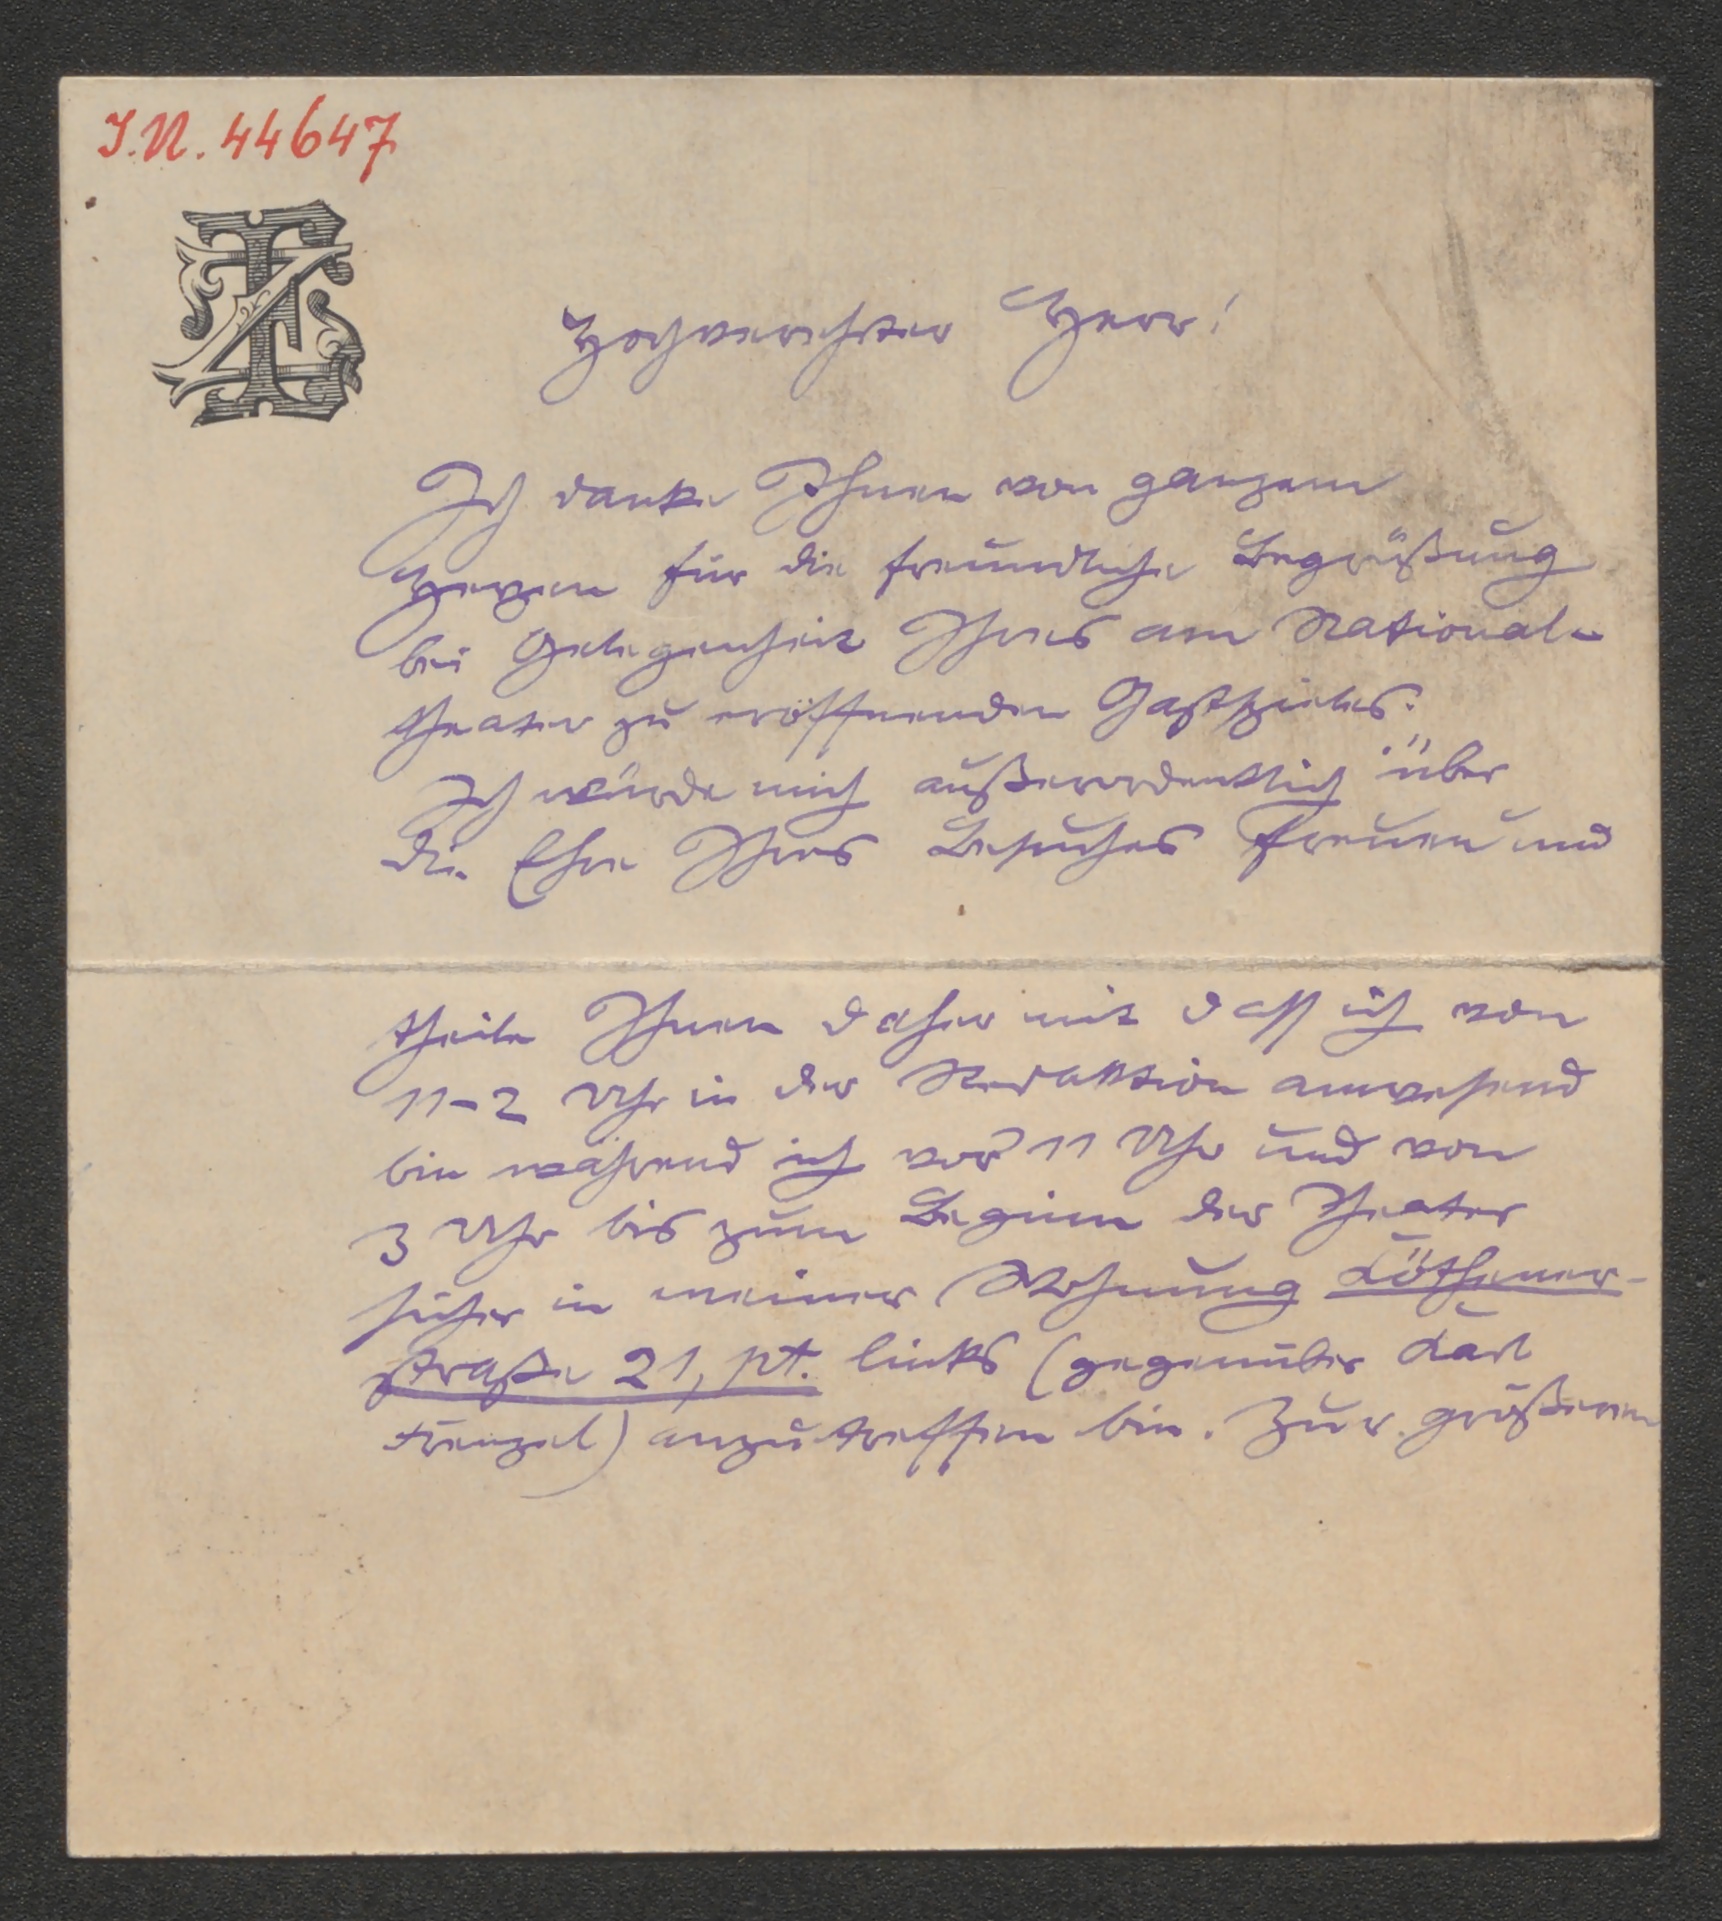 I.N. 44647
Hochverehrter Herr!
Ich danke Ihnen von ganzem
Herzen für die freundliche Begrüßung
bei Gelegenheit Ihres am National-
theater zu eröffnenden Gastspieles.
Ich würde mich außerordentlich über
die Ehre Ihres Besuches freuen und
theile Ihnen daher mit dass ich von
11-2 Uhr in der Redaktion anwesend
bin während ich vor 11 Uhr und von
3 Uhr bis zum Beginn der Theater
sicher in meiner Wohnung Köthener-
straße 21, pt. links (gegenüber Karl
Frenzel) anzutreffen bin. Zur größeren